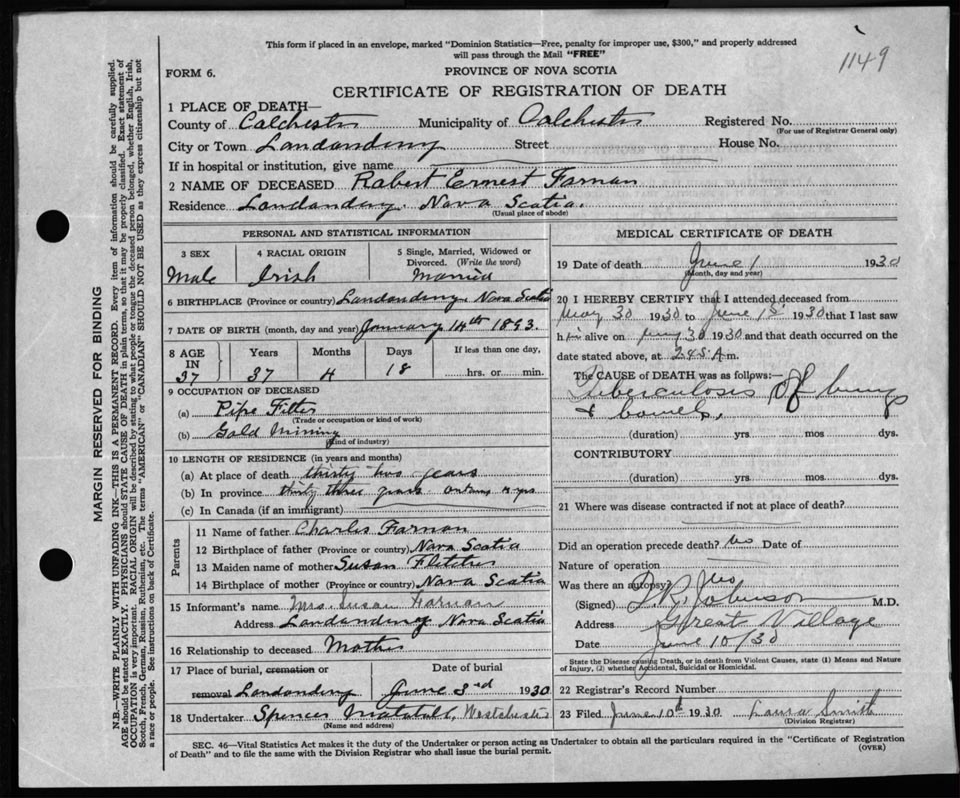 This form if placed in an envelope, marked "Dominion Statistics—Free, penalty for improper use, $300," and properly addressed
will pass through the Mail "FREE"
1149
FORM 6.
PROVINCE OF NOVA SCOTIA
CERTIFICATE OF REGISTRATION OF DEATH
1 PLACE OF DEATH—
County of Colchester Municipality of Colchester Registered No.
(For use of Registrar General only)
City or Town Londonderry Street House No.
If in hospital or institution, give name
2 NAME OF DECEASED Robert Ernest Farnan
Residence Londonderry. Nova Scotia.
(Usual place of abode)
PERSONAL AND STATISTICAL INFORMATION
3 SEX 4 RACIAL ORIGIN 5 Single, Married, Widowed or
Divorced. (Write the word)
Male Irish Married
6 BIRTHPLACE (Province or country) Londonderry Nova Scotia
7 DATE OF BIRTH (month, day and year) January 14th 1893.
8 AGE IN Years Months Days If less than one day,
37 37 4 18 hrs. or min.
9 OCCUPATION OF DECEASED
(a) Pipe Fitter
(Trade or occupation or kind of work)
(b) Gold Mining
(Kind of industry)
10 LENGTH OF RESIDENCE (in years and months)
(a) At place of death thirty two years
(b) In province thirty three years
(c) In Canada (if an immigrant)
Parents
11 Name of father Charles Farnan
12 Birthplace of father (Province or country) Nova Scotia
13 Maiden name of mother Susan Fletcher
14 Birthplace of mother (Province or country) Nova Scotia
15 Informant's name Mrs. Susan Farnan
Address Londonderry Nova Scotia
16 Relationship to deceased Mother
17 Place of burial, cremation or Date of burial
removal Londonderry June 3rd 1930
18 Undertaker Spencer Westchester
(Name and address)
MEDICAL CERTIFICATE OF DEATH
19 Date of death June 1 1930
(Month, day and year)
20 I HEREBY CERTIFY that I attended deceased from
May 30 1930 to June 1st 1930 that I last saw
him alive on May 30 1930 and that death occurred on the
date stated above, at 2.45 A.m.
The CAUSE of DEATH was as follows:—
Tuberculosis of lungs
& bowels.
(duration) yrs. mos dys.
CONTRIBUTORY
(duration) yrs. mos. dys.
21 Where was disease contracted if not at place of death?
Did an operation precede death? No Date of
Nature of operation
Was there an autopsy? No
(Signed) Johnson M.D.
Address Great Village
Date June 10/30
State the Disease causing Death, or in death from Violent Causes, state (1) Means and Nature
of Injury, (2) whether Accidental, Suicidal or Homicidal.
22 Registrar's Record Number
23 Filed June 10th 1930 Laura Smith
(Division Registrar)
SEC. 46—Vital Statistics Act makes it the duty of the Undertaker or person acting as Undertaker to obtain all the particulars required in the "Certificate of Registration
of Death" and to file the same with the Division Registrar who shall issue the burial permit.
(OVER)
MARGIN RESERVED FOR BINDING
N.B.—WRITE PLAINLY WITH UNFADING INK—THIS IS A PERMANENT RECORD. Every item of information should be carefully supplied.
AGE should be stated EXACTLY. PHYSICIANS should STATE CAUSE OF DEATH in plain terms, so that it may be properly classified. Exact statement of
OCCUPATION is very important. RACIAL ORIGIN will be described by stating to what people or tongue the deceased person belonged, whether English, Irish,
Scotch, French, German, Russian, Ruthenian, etc. The terms "AMERICAN" or "CANADIAN" SHOULD NOT BE USED as they express citizenship but not
a race or people. See instructions on back of Certificate.